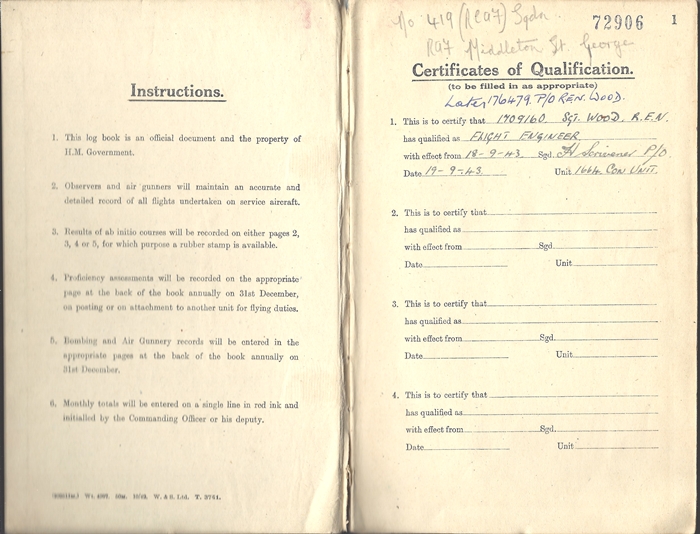 Instructions.
1. This log book is an official document and the property of
H.M. Government.
2. Observers and air gunners will maintain an accurate and
detailed record of all flights undertaken on service aircraft.
3. Results of ab initio courses will be recorded on either pages 2,
3, 4 or 5, for which purpose a rubber stamp is available.
4. Proficiency assessments will be recorded on the appropriate
page at the back of the book annually on 31st December,
on posting or on attachment to another unit for flying duties.
5. Bombing and Air Gunnery records will be entered in the
appropriate pages at the back of the book annually on
31st December.
6. Monthly totals will be entered on a single line in red ink and
initialled by the Commanding Officer or his deputy.
Wt. 50m. W. & S. Ltd. T. 3751.
No 419 (RCAF) Sqdn.
RAF Middleton St. George
72906
1
Certificates of Qualification.
(to be filled in as appropriate)
Later 176479. P/O R.E.N. WOOD.
1. This is to certify that 1709160. SGT. WOOD. R.E.N.
has qualified as FLIGHT ENGINEER
with effect from 18-9-43. Sgd. H Scrivener P/O
Date 19-9-43. Unit 1664 CON UNIT.
2. This is to certify that
has qualified as
with effect from Sgd.
Date Unit
3. This is to certify that
has qualified as
with effect from Sgd.
Date Unit
4. This is to certify that
has qualified as
with effect from Sgd.
Date Unit